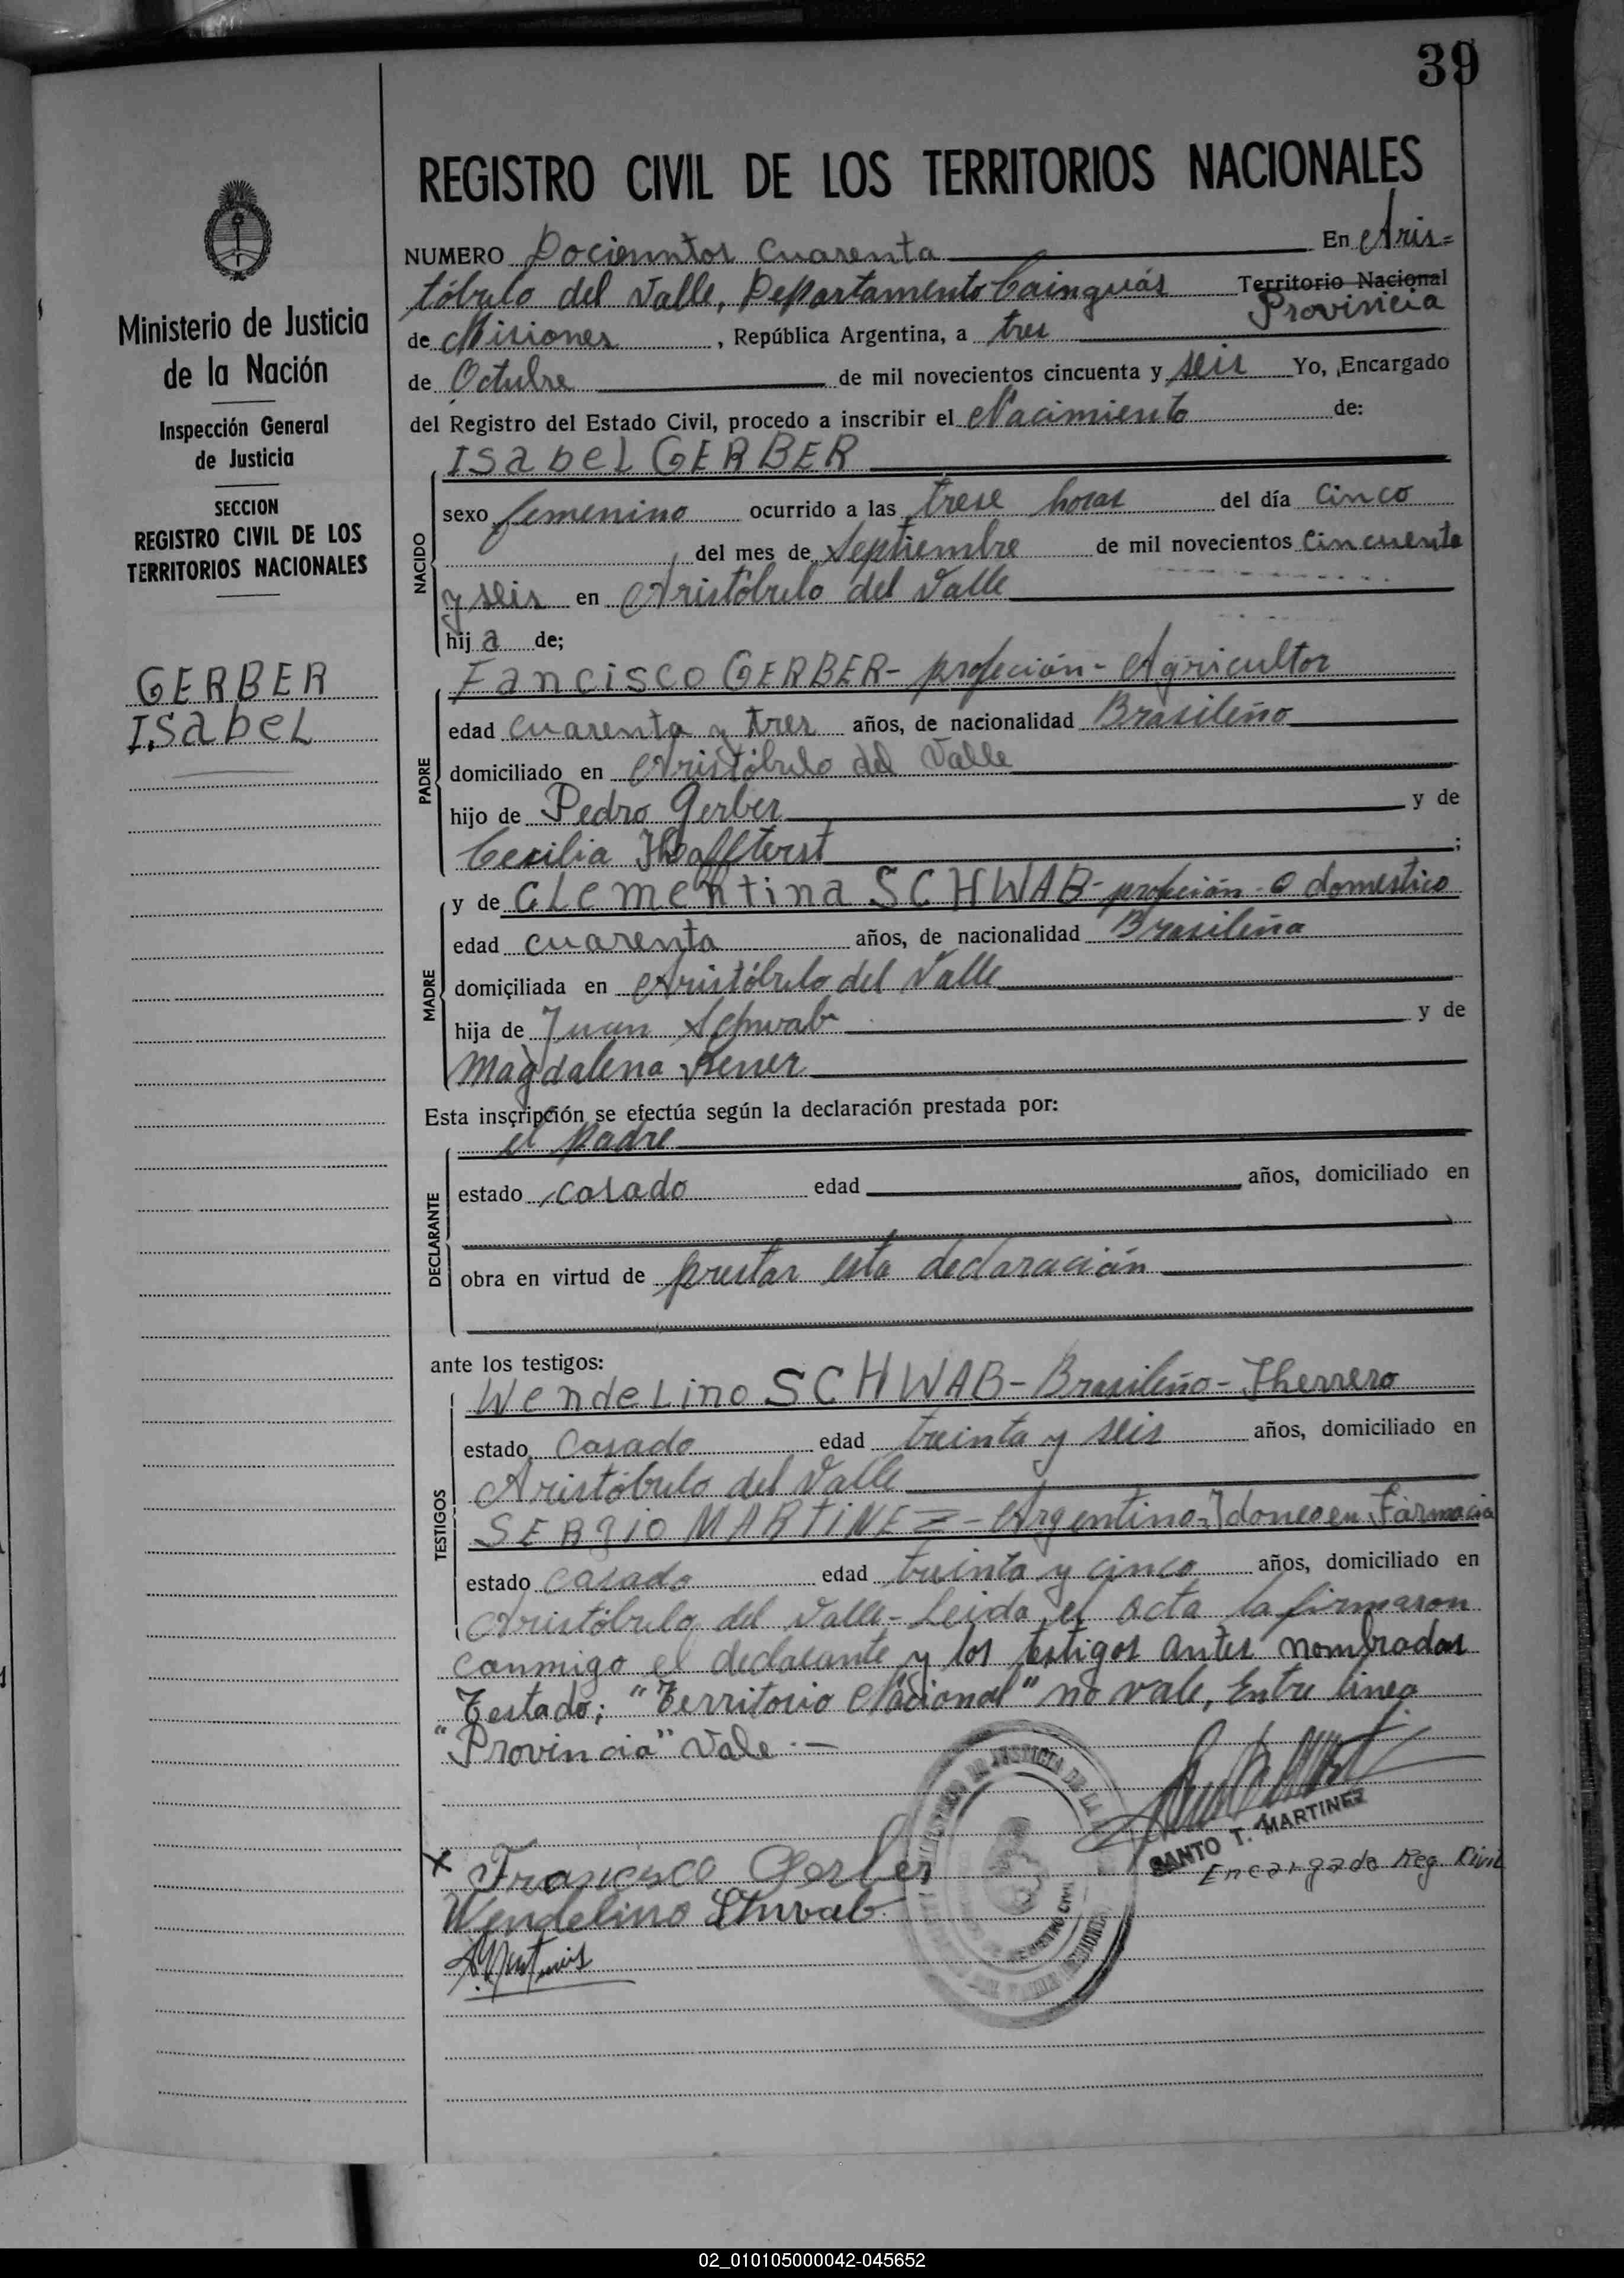 39
REGISTRO CIVIL DE LOS TERRITORIOS NACIONALES
Ministerio de Justicia
de la Nación
Inspección General
de Justicia
SECCION
REGISTRO CIVIL DE LOS
TERRITORIOS NACIONALES
GERBER
ISabeL
NUMERO Docienntos cuarenta En Aris=
tóbulo del Valle, Departamento Cainguás Territorio Nacional
Provincia
de Misiones, República Argentina, a tres
de Octubre de mil novecientos cincuenta y seis Yo, Encargado
del Registro del Estado Civil, procedo a inscribir el Nacimiento de:
NACIDO
ISabeL GERBER
sexo femenino ocurrido a las trese horas del día cinco
del mes de Septiembre de mil novecientos cincuenta
y seis en Aristóbulo del Valle
hija de;
PADRE
Fancisco GERBER- profeción- Agricultor
edad cuarenta y tres años, de nacionalidad Brasileño
domiciliado en Aristóbulo del Valle
hijo de Pedro Gerber y de
Cecilia ;
MADRE
y de CLementina SCHWAB- profeción- Q domestico
edad cuarenta años, de nacionalidad Brasileña
domiciliada en Aristóbulo del Valle
hija de Juan Schwab y de
Magdalena
Esta inscripción se efectúa según la declaración prestada por:
DECLARANTE
el padre
estado casado edad años, domiciliado en
obra en virtud de prestar esta declaración
ante los testigos:
TESTIGOS
WendeLino SCHWAB- Brasileño- Jherrero
estado casado edad treinta y seis años, domiciliado en
Aristóbulo del Valle
SERgio MARTiNEZ- Argentino- Idoneo en Farmacia
estado casado edad treinta y cinco años, domiciliado en
Aristóbulo del Valle- Leida el acta la firmaron
conmigo el declarante y los testigos antes nombrados
Testado: "Territorio Nacional" no vale, Entre linea
"Provincia" Vale.-
SANTO T. MARTINEZ
Encargado Reg. Civil
x Francisco Gerber
Wendelino Schwab
02_010105000042-045652